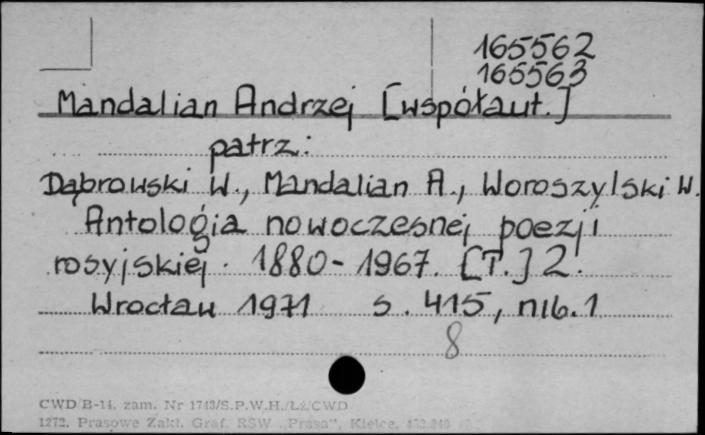 165562
165563
Mandalian Andrzej [współaut.]
patrz:
Dąbrowski W., Mandalian A., Woroszylski W.
Antologia nowoczesnej poezji
rosyjskiej. 1880-1967. [T.] 2.
Wrocław 1971 s. 415, nlb. 1
8
CWD B-14. zam. Nr 1743/S.P.W.H./Łż/CWD
1272. Prasowe Zakł. Graf. RSW „Prasa”, Kielce.